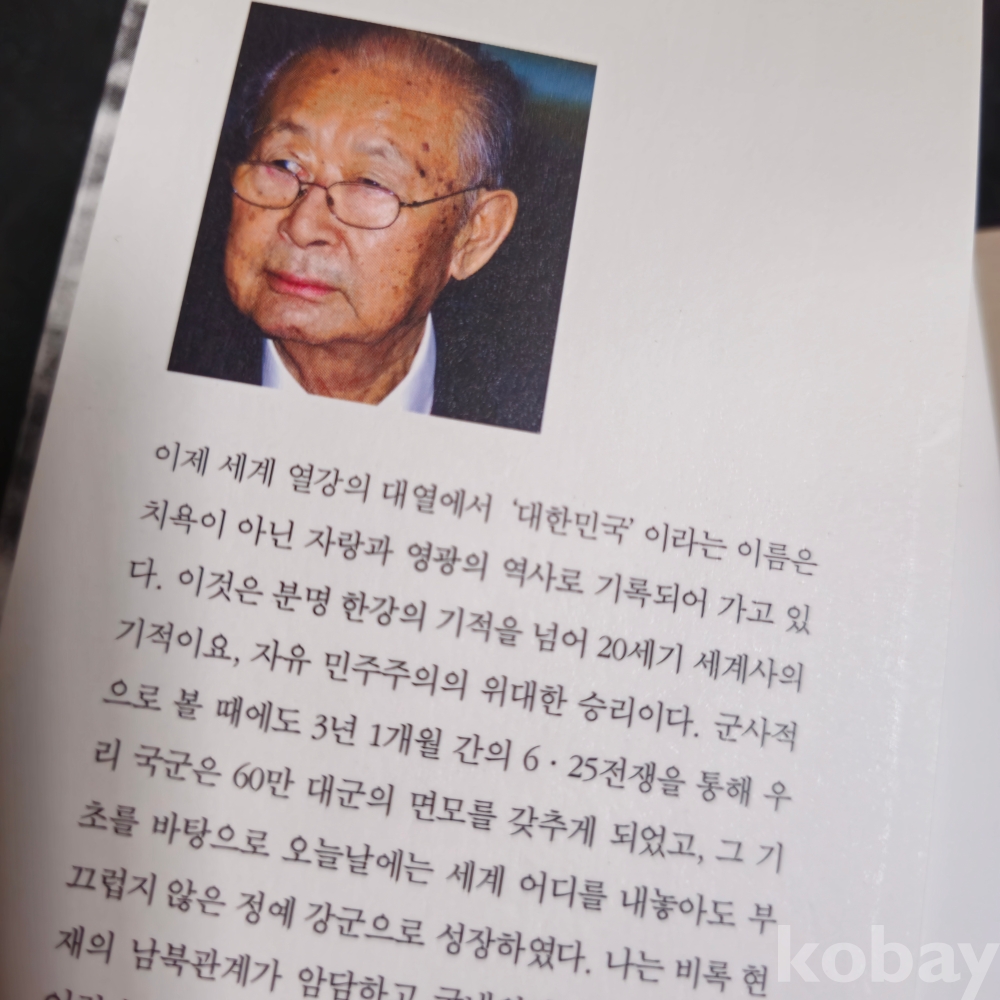 이제 세계 열강의 대열에서 ‘대한민국’ 이라는 이름은
치욕이 아닌 자랑과 영광의 역사로 기록되어 가고 있
다. 이것은 분명 한강의 기적을 넘어 20세기 세계사의
기적이요, 자유 민주주의의 위대한 승리이다. 군사적
으로 볼 때에도 3년 1개월 간의 6·25전쟁을 통해 우
리 국군은 60만 대군의 면모를 갖추게 되었고, 그 기
초를 바탕으로 오늘날에는 세계 어디를 내놓아도 부
끄럽지 않은 정예 강군으로 성장하였다. 나는 비록 현
재의 남북관계가 암담하고
kobay